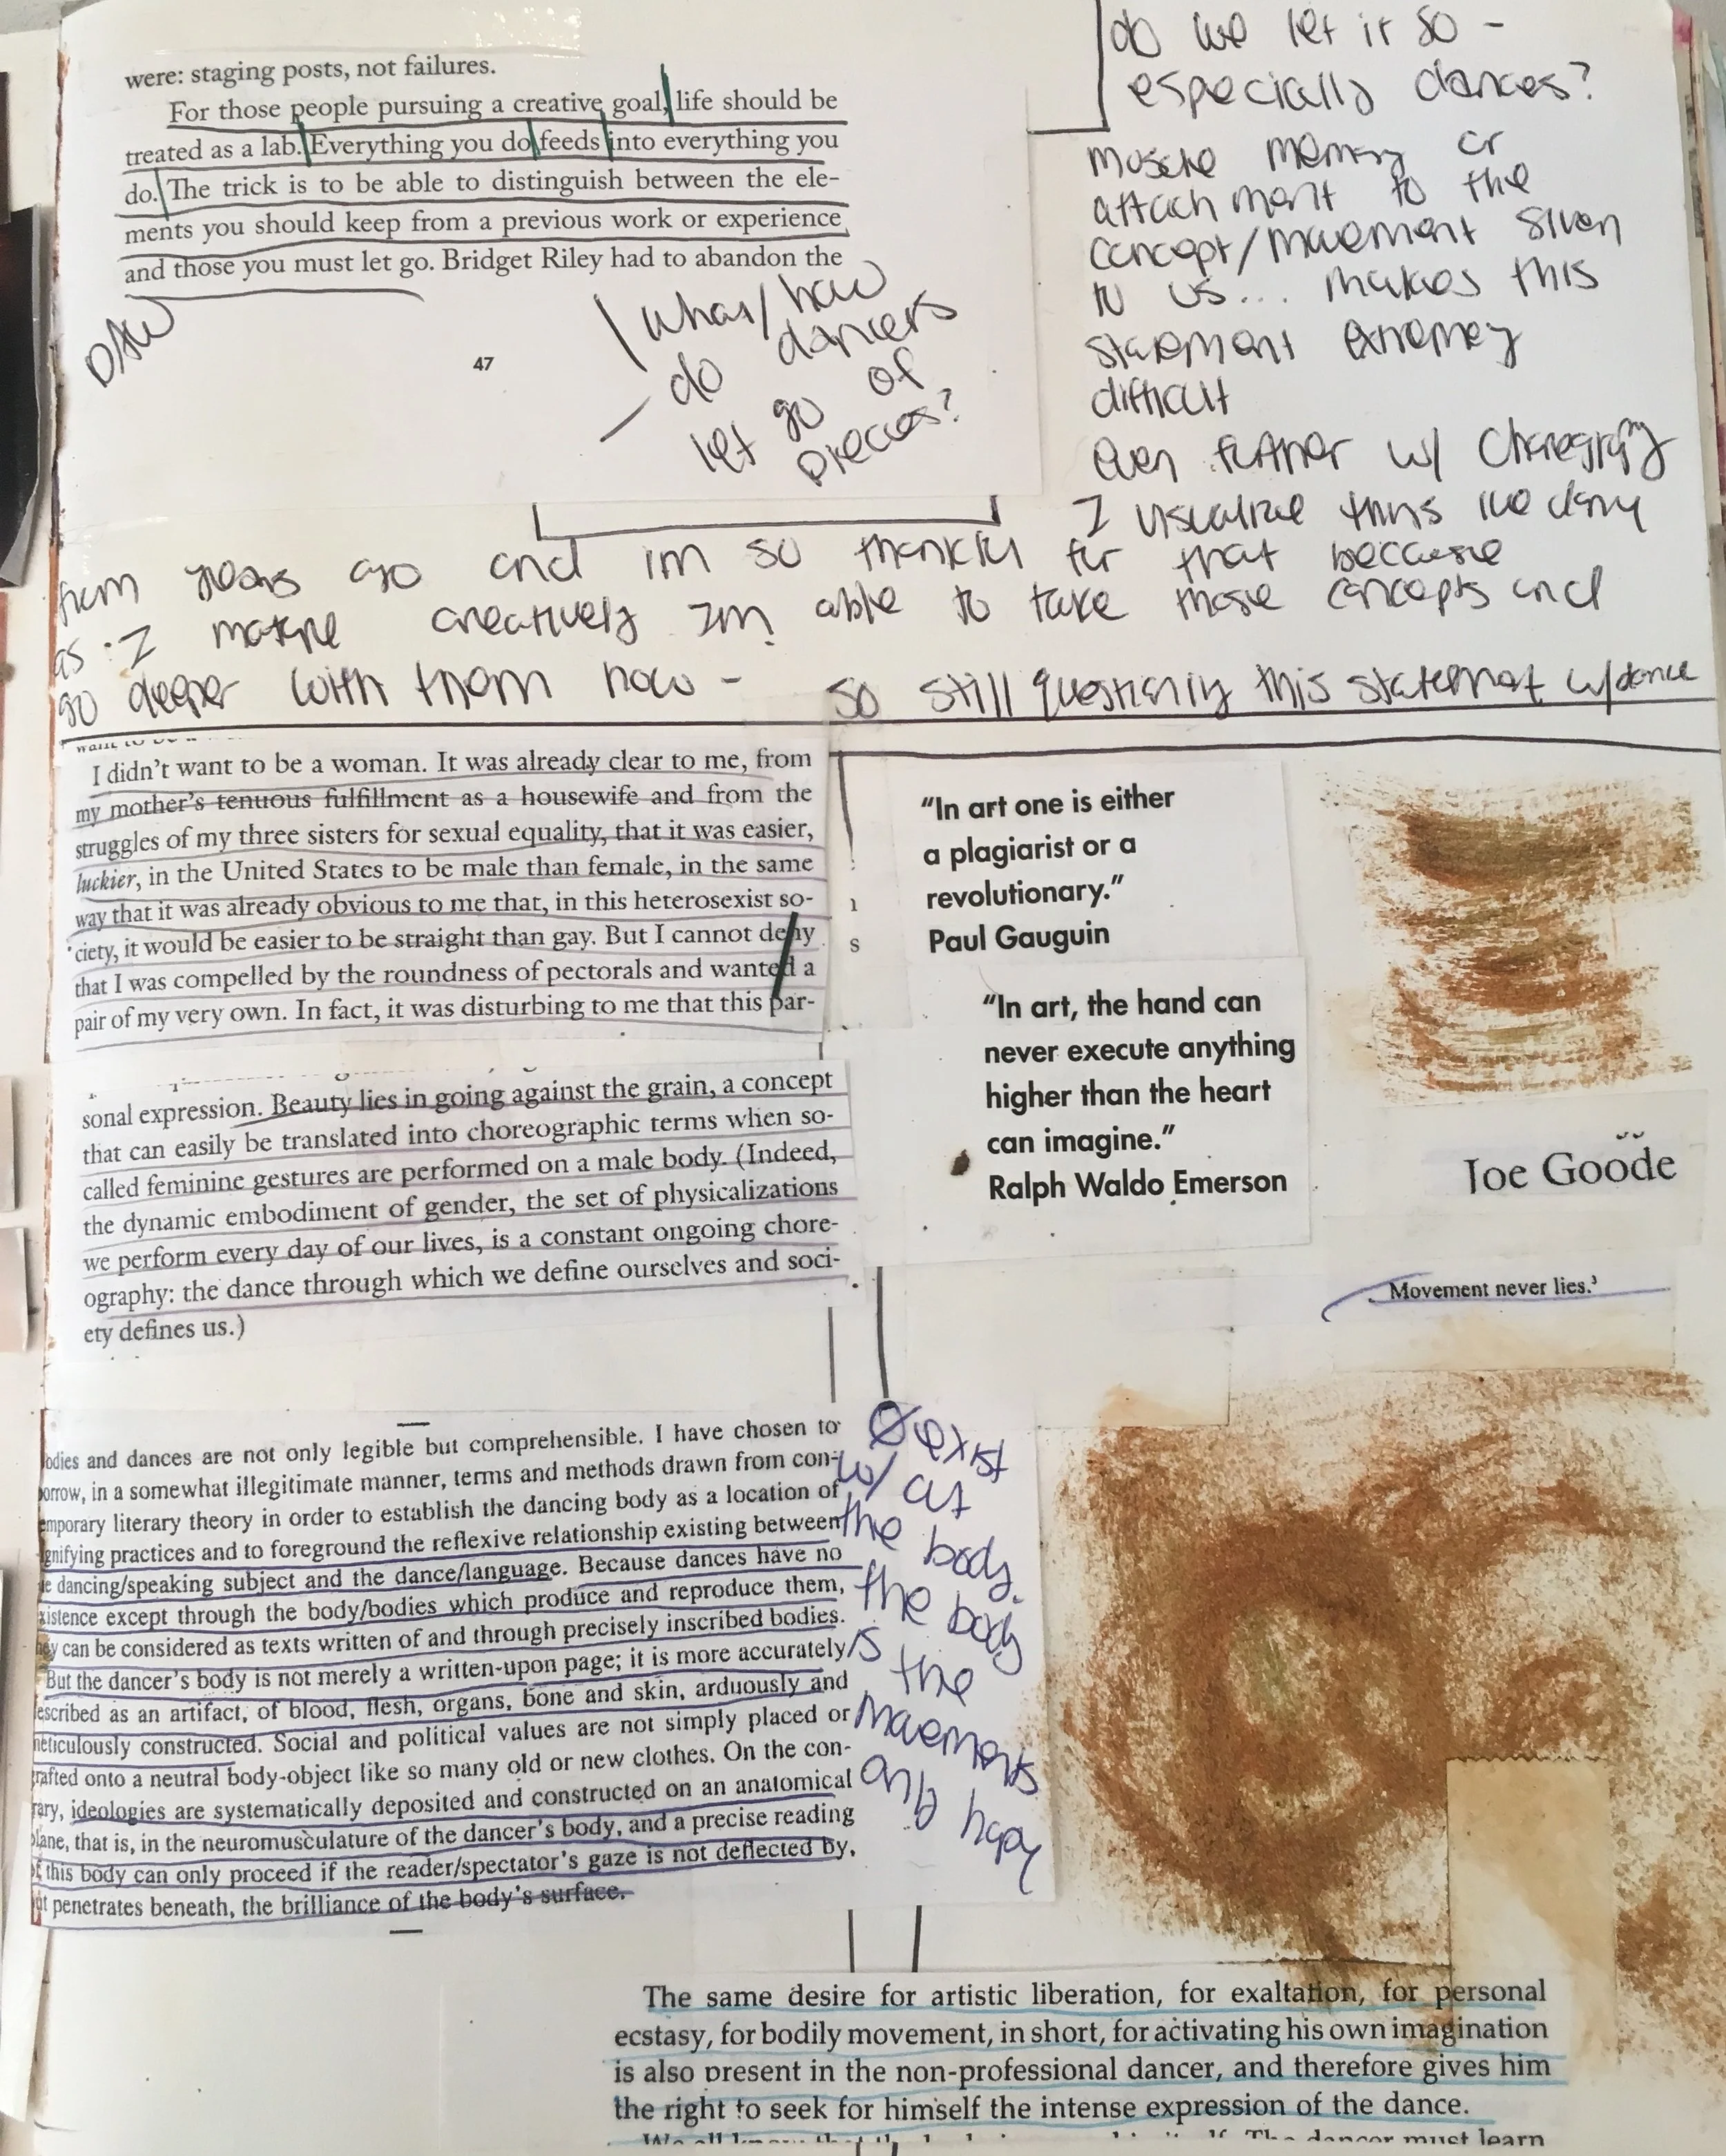 were: staging posts, not failures.
For those people pursuing a creative goal, life should be
treated as a lab. Everything you do feeds into everything you
do. The trick is to be able to distinguish between the ele-
ments you should keep from a previous work or experience
and those you must let go. Bridget Riley had to abandon the
47
What/how
do dancers
let go of
pieces?
do we let it so -
especially dances?
muscle memory or
attachment to the
concept/movement given
to us... makes this
statement extremey
difficult
even further w/
I visualize this
from years ago and im so thankful for that because
as I mature creatively Im able to take those concepts and
go deeper with them now - so still questioning this statement w/dance
I didn't want to be a woman. It was already clear to me, from
my mother's tenuous fulfillment as a housewife and from the
struggles of my three sisters for sexual equality, that it was easier,
luckier, in the United States to be male than female, in the same
way that it was already obvious to me that, in this heterosexist so-
ciety, it would be easier to be straight than gay. But I cannot deny
that I was compelled by the roundness of pectorals and wanted a
pair of my very own. In fact, it was disturbing to me that this par-
"In art one is either
a plagiarist or a
revolutionary."
Paul Gauguin
"In art, the hand can
never execute anything
higher than the heart
can imagine."
Ralph Waldo Emerson
Joe Goode
Movement never lies.³
sonal expression. Beauty lies in going against the grain, a concept
that can easily be translated into choreographic terms when so-
called feminine gestures are performed on a male body. (Indeed,
the dynamic embodiment of gender, the set of physicalizations
we perform every day of our lives, is a constant ongoing chore-
ography: the dance through which we define ourselves and soci-
ety defines us.)
odies and dances are not only legible but comprehensible. I have chosen to
orrow, in a somewhat illegitimate manner, terms and methods drawn from con-
emporary literary theory in order to establish the dancing body as a location of
gnifying practices and to foreground the reflexive relationship existing between
e dancing/speaking subject and the dance/language. Because dances have no
xistence except through the body/bodies which produce and reproduce them,
hey can be considered as texts written of and through precisely inscribed bodies.
But the dancer's body is not merely a written-upon page; it is more accurately
escribed as an artifact, of blood, flesh, organs, bone and skin, arduously and
meticulously constructed. Social and political values are not simply placed or
rafted onto a neutral body-object like so many old or new clothes. On the con-
rary, ideologies are systematically deposited and constructed on an anatomical
plane, that is, in the neuromusculature of the dancer's body, and a precise reading
of this body can only proceed if the reader/spectator's gaze is not deflected by,
ut penetrates beneath, the brilliance of the body's surface.
exist
w/
the body.
the body
is the
movements
The same desire for artistic liberation, for exaltation, for personal
ecstasy, for bodily movement, in short, for activating his own imagination
is also present in the non-professional dancer, and therefore gives him
the right to seek for himself the intense expression of the dance.
The dancer must learn